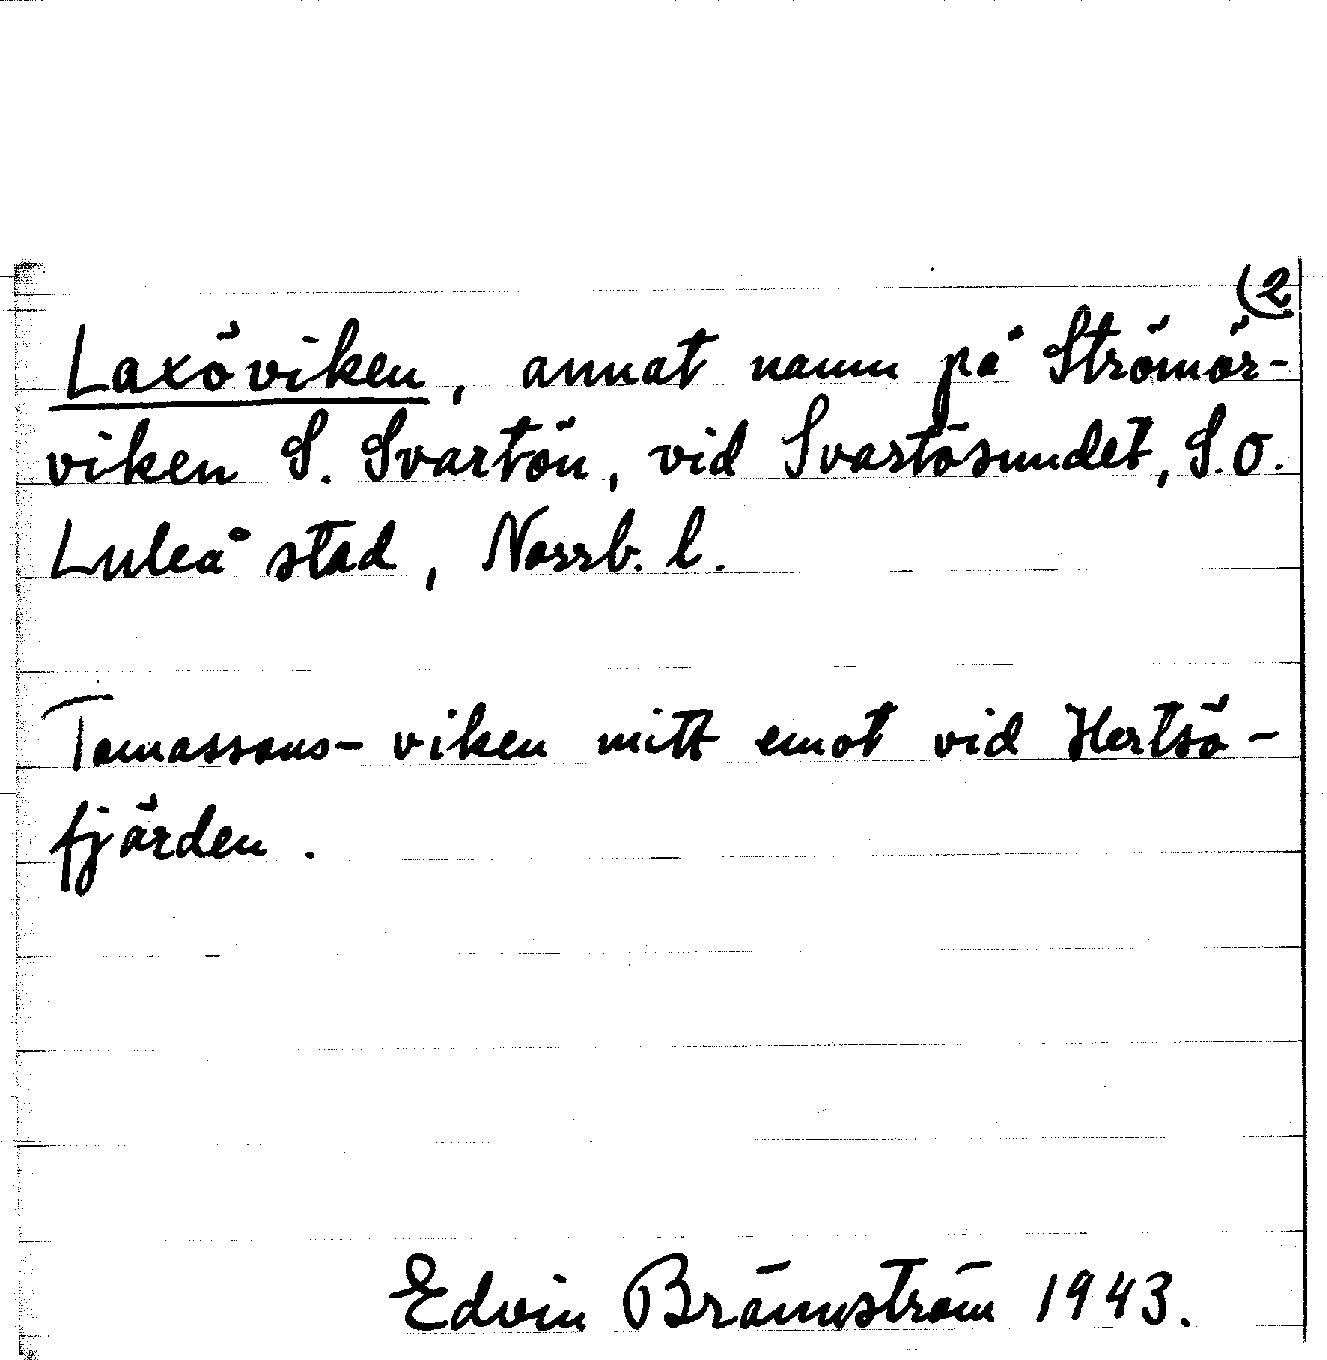 (2
Laxöviken, annat namn på Strömör-
viken S. Svartön, vid Svartösundet, S.O.
Luleå stad, Norrb. l.
Tomassons- viken mitt emot vid Hertsö-
fjärden.
Edvin Brännström 1943.